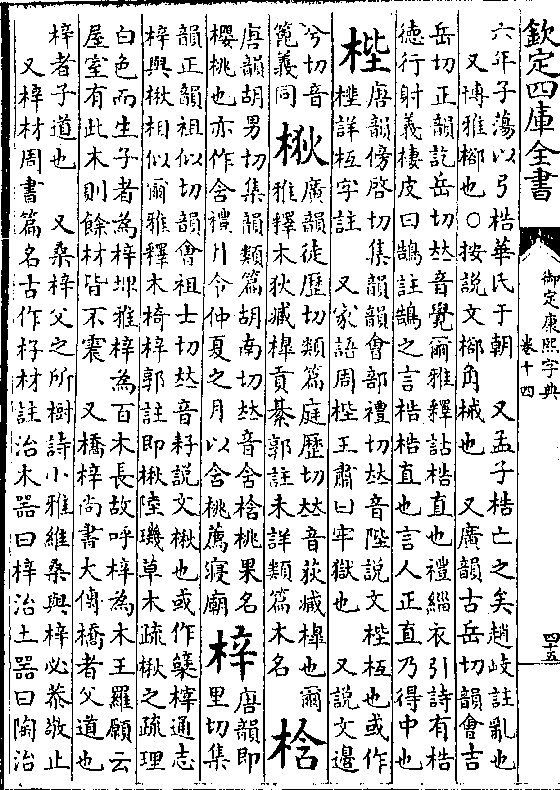 欽定四庫全書
御定康熙字典
卷十四
四十五
六年子蕩以弓梏華氏于朝 又孟子梏亡之矣趙岐註亂也
又博雅桷也○按說文桷角械也 又廣韻古岳切韻會吉
岳切正韻訖岳切𠀤音覺爾雅釋詁梏直也禮緇衣引詩有梏
德行射義棲皮曰鵠註鵠之言梏梏直也言人正直乃得中也
梐唐韻傍啓切集韻韻會部禮切𠀤音陛說文梐枑也或作
㮰詳枑字註 又家語周梐王肅曰牢獄也 又說文邊
兮切音
篦義同
梑廣韻徒歷切類篇庭歷切𠀤音荻臧槹也爾
雅釋木狄臧槹貢綦郭註未詳類篇木名
梒
唐韻胡男切集韻類篇胡南切𠀤音含梒桃果名
櫻桃也亦作含禮月令仲夏之月以含桃薦寢廟
梓唐韻即
里切集
韻正韻祖似切韻會祖士切𠀤音籽說文楸也或作榟通志
梓與楸相似爾雅釋木椅梓郭註即楸陸璣草木疏楸之疏理
白色而生子者為梓埤雅梓為百木長故呼梓為木王羅願云
屋室有此木則餘材皆不震 又橋梓尚書大傳橋者父道也
梓者子道也 又桑梓父之所樹詩小雅維桑與梓必恭敬止
又梓材周書篇名古作杍材註治木器曰梓治土器曰陶治